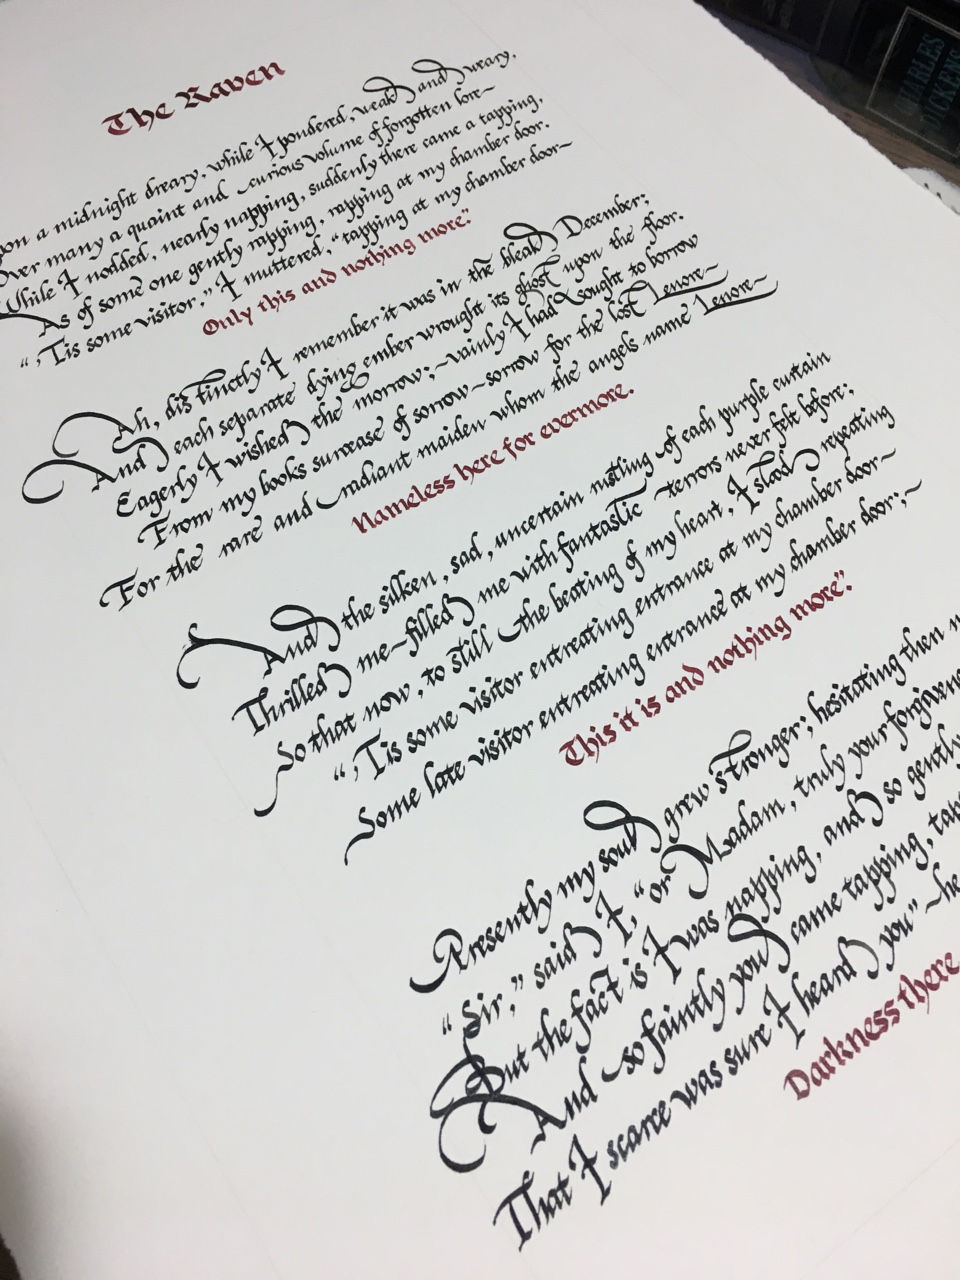 The Raven
upon a midnight dreary, while I pondered, weak and weary,
Over many a quaint and curious volume of forgotten lore~
While I nodded, nearly napping, suddenly there came a tapping,
As of some one gently rapping, rapping at my chamber door.
“'Tis some visitor,” I muttered, “tapping at my chamber door~
Only this and nothing more.”
Ah, distinctly I remember it was in the bleak December;
And each separate dying ember wrought its ghost upon the floor.
Eagerly I wished the morrow;~vainly I had sought to borrow
From my books surcease of sorrow~sorrow for the lost Lenore~
For the rare and radiant maiden whom the angels name Lenore~
Nameless here for evermore.
And the silken, sad, uncertain rustling of each purple curtain
Thrilled me~filled me with fantastic terrors never felt before;
So that now, to still the beating of my heart, I stood repeating
“'Tis some visitor entreating entrance at my chamber door~
Some late visitor entreating entrance at my chamber door;~
This it is and nothing more.”
Presently my soul grew stronger; hesitating then
“Sir,” said I, “or Madam, truly your
But the fact is I was napping, and so gently
And so faintly you came tapping,
That I scarce was sure I heard you”~
Darkness there
CHARLES
DICKENS